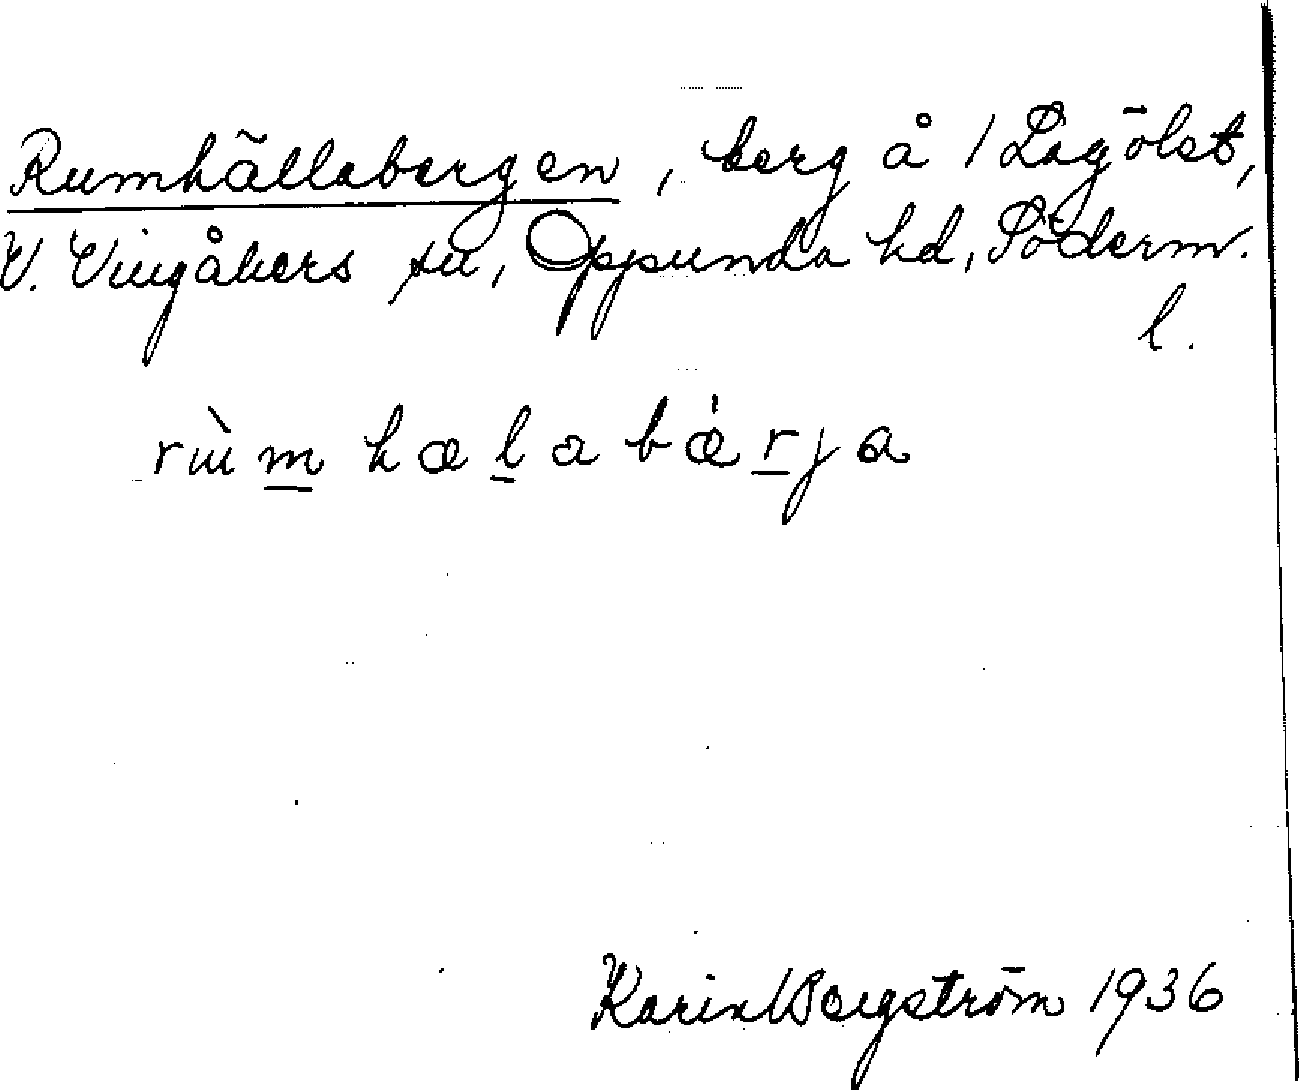 Rumhällabergen, berg å 1 Lagölst,
V. Vingåkers sn, Oppunda hd, Söderm.
l.
rùm hæla bǽrja
Karin Bergström 1936